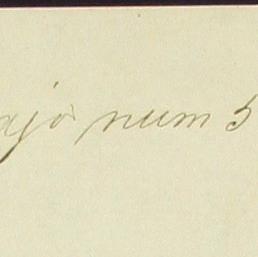 ajo num 5